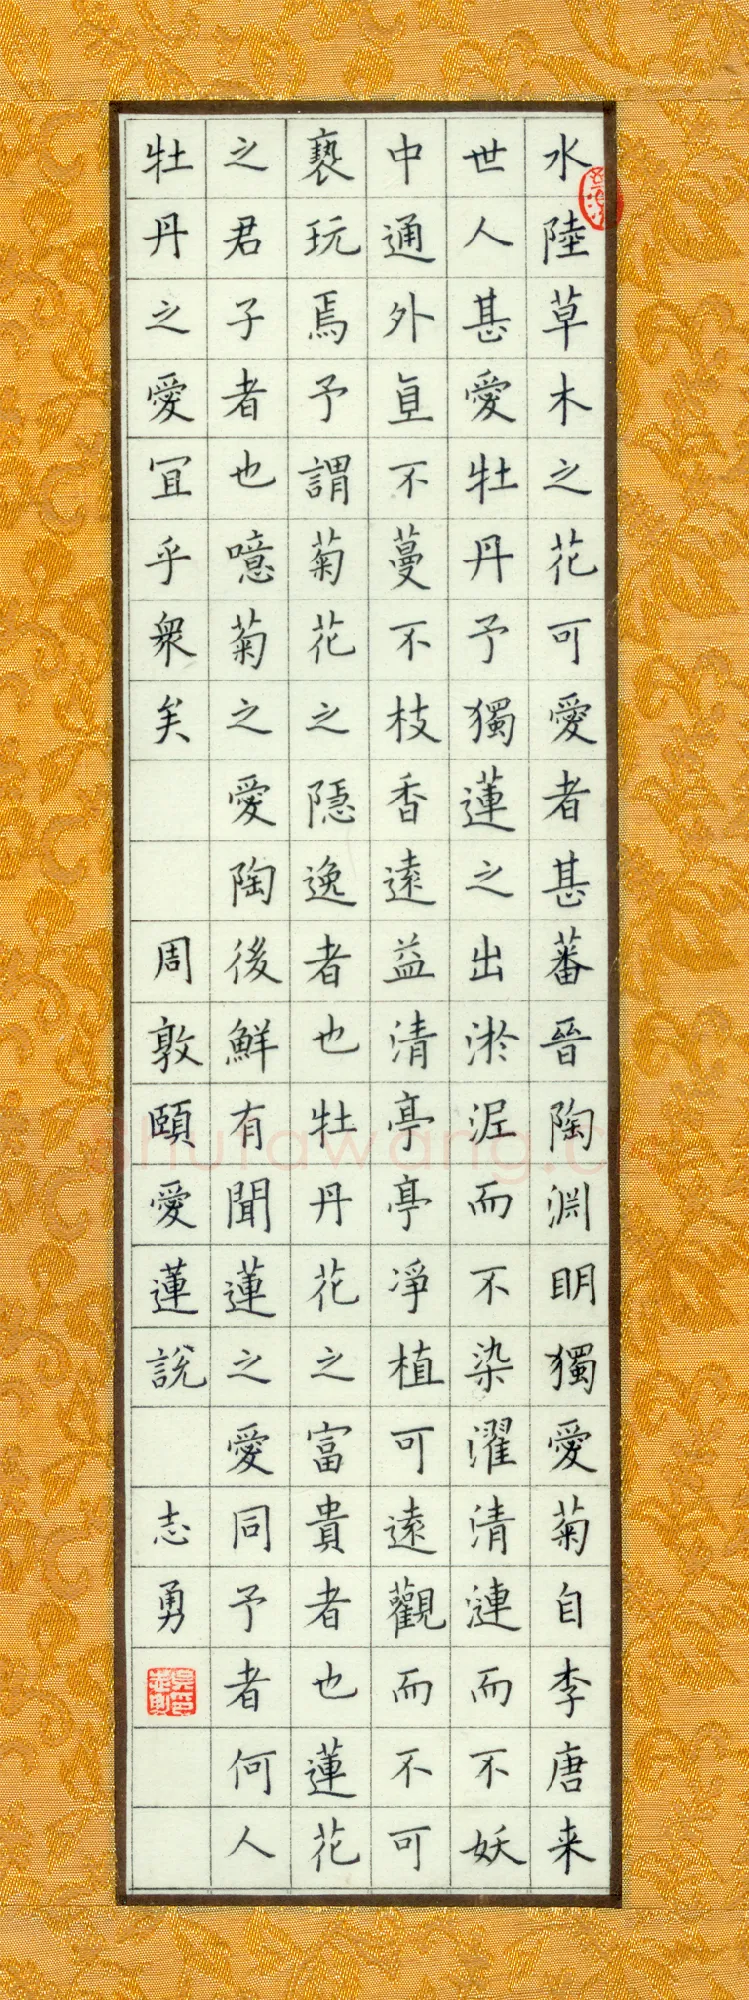 水陸草木之花可愛者甚蕃晉陶渊眀獨愛菊自李唐来
世人甚愛牡丹予獨蓮之出淤泥而不染濯清漣而不妖
中通外直不蔓不枝香逺益清亭亭凈植可逺觀而不可
褻玩焉予謂菊花之隠逸者也牡丹花之富貴者也蓮花
之君子者也噫菊之愛陶後鮮有聞蓮之愛同予者何人
牡丹之愛冝乎衆矣 周敦頤愛蓮說 志勇